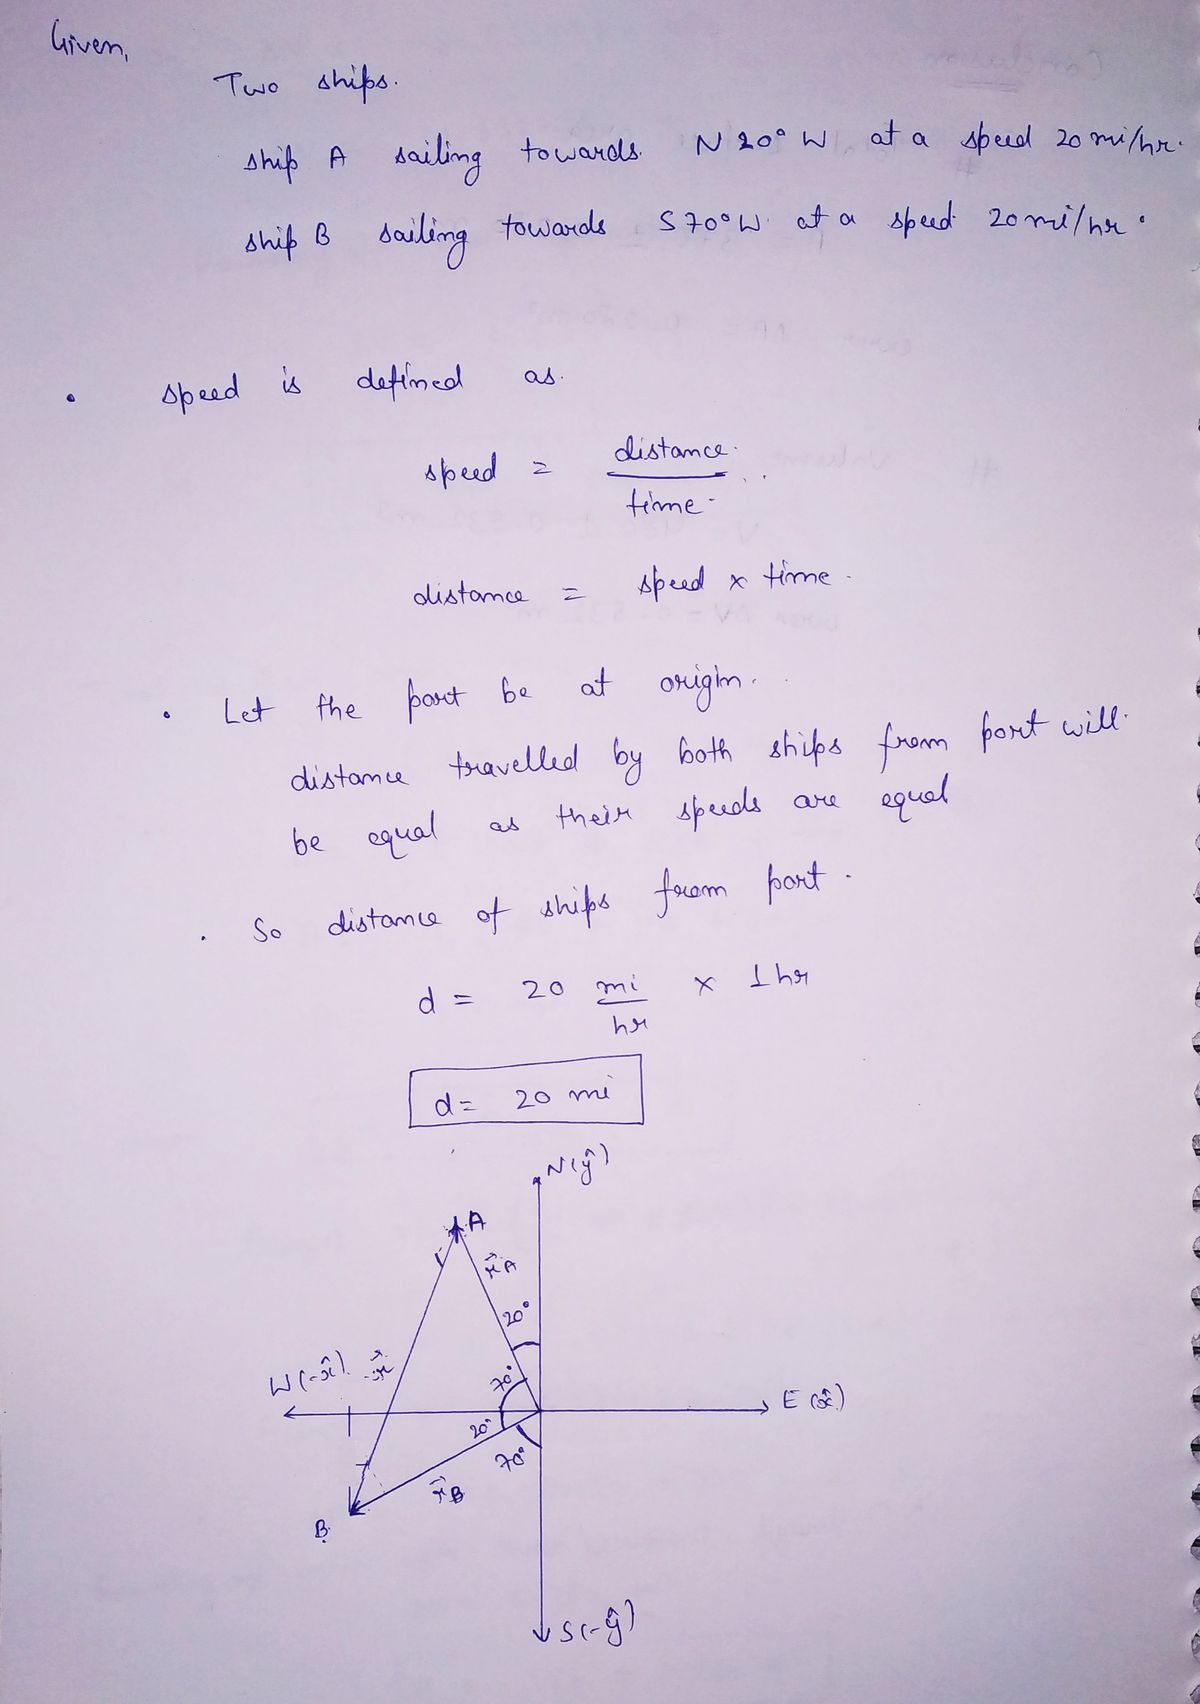 Given,
Two ships.
ship A sailing towards N 20° W at a speed 20 mi/hr.
ship B sailing towards S 70° W at a speed 20 mi/hr.
• speed is defined as.
speed = distance / time
distance = speed × time.
• Let the port be at origin.
distance travelled by both ships from port will
be equal as their speeds are equal
• So distance of ships from port.
d = 20 mi/hr × 1 hr
d = 20 mi
N(ŷ)
A
r⃗A
20°
W(-x̂)
70°
E(x̂)
20°
70°
r⃗B
B
S(-ŷ)